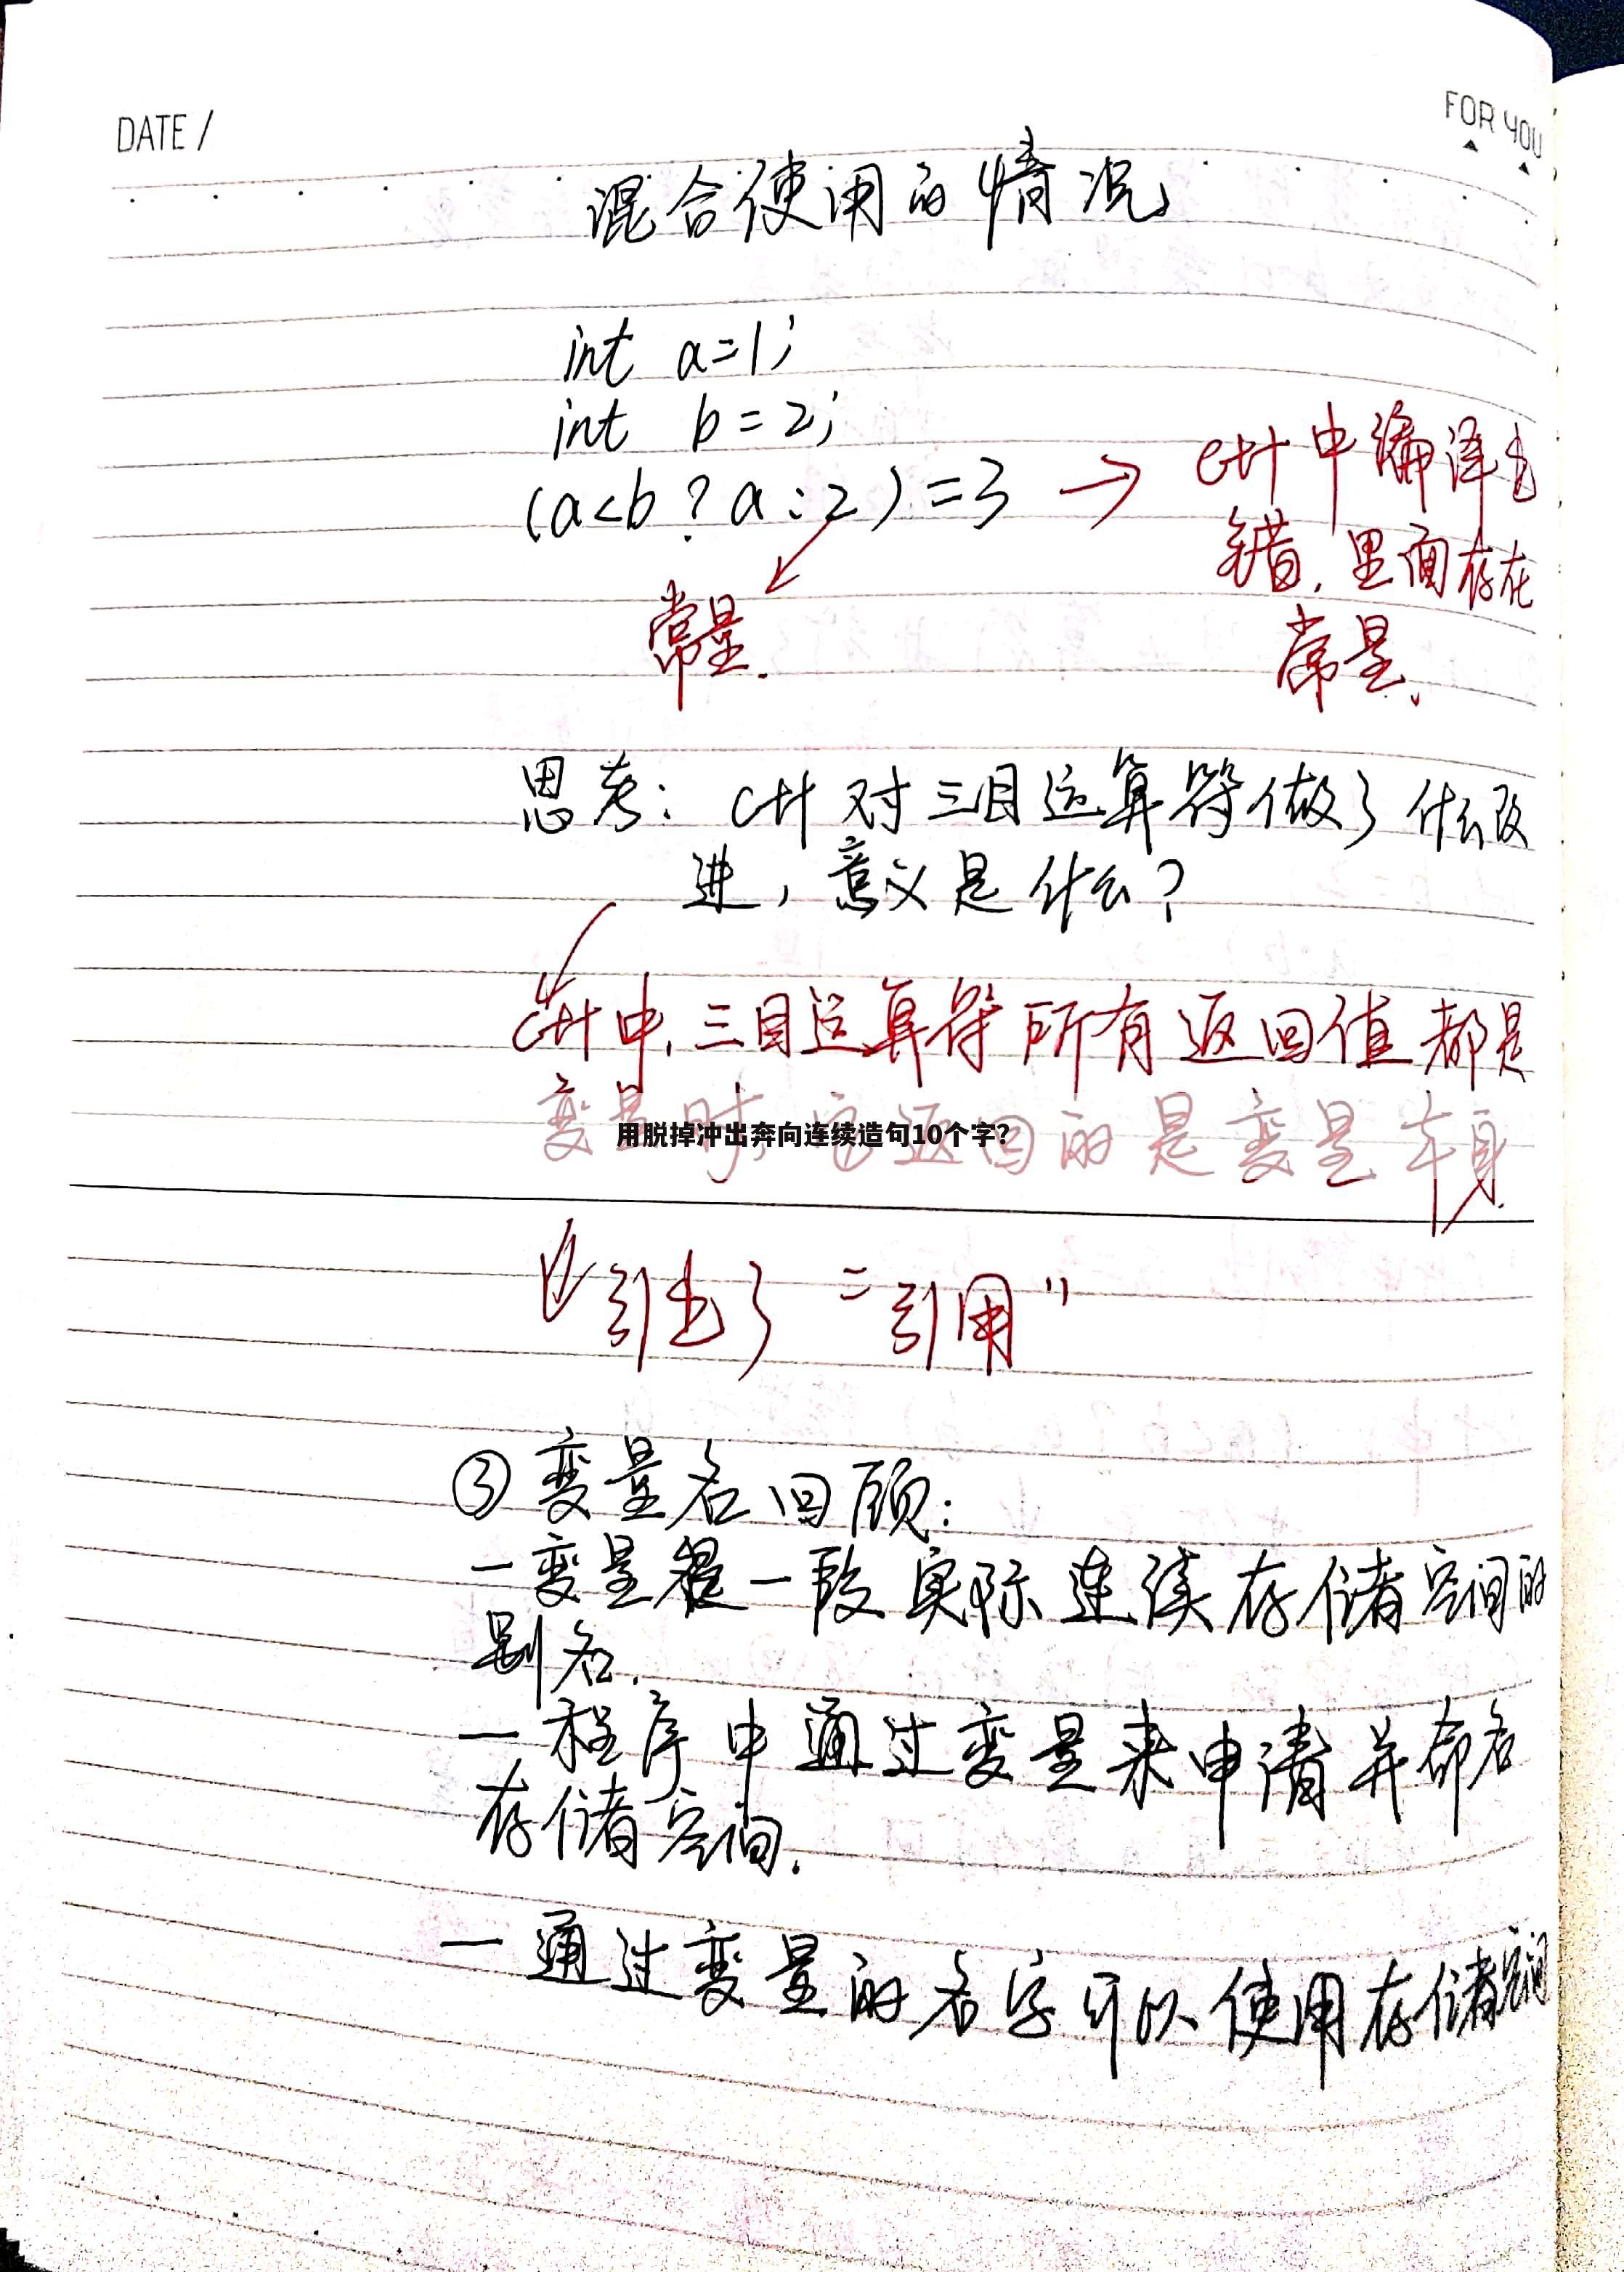 DATE /
FOR YOU
混合使用的情况
int a=1;
int b=2;
(a<b ? a : 2) = 3 → C++中编译出
错, 里面存在
常量.
常量.
思考: C++对三目运算符做了什么改
进, 意义是什么?
C++中, 三目运算符所有返回值都是
变量时, 它返回的是变量本身.
用脱掉冲出奔向连续造句10个字?
引出了"引用"
③ 变量名回顾:
一变量是一段实际连续存储空间的
别名.
一程序中通过变量来申请并命名
存储空间.
一通过变量的名字可以使用存储空间